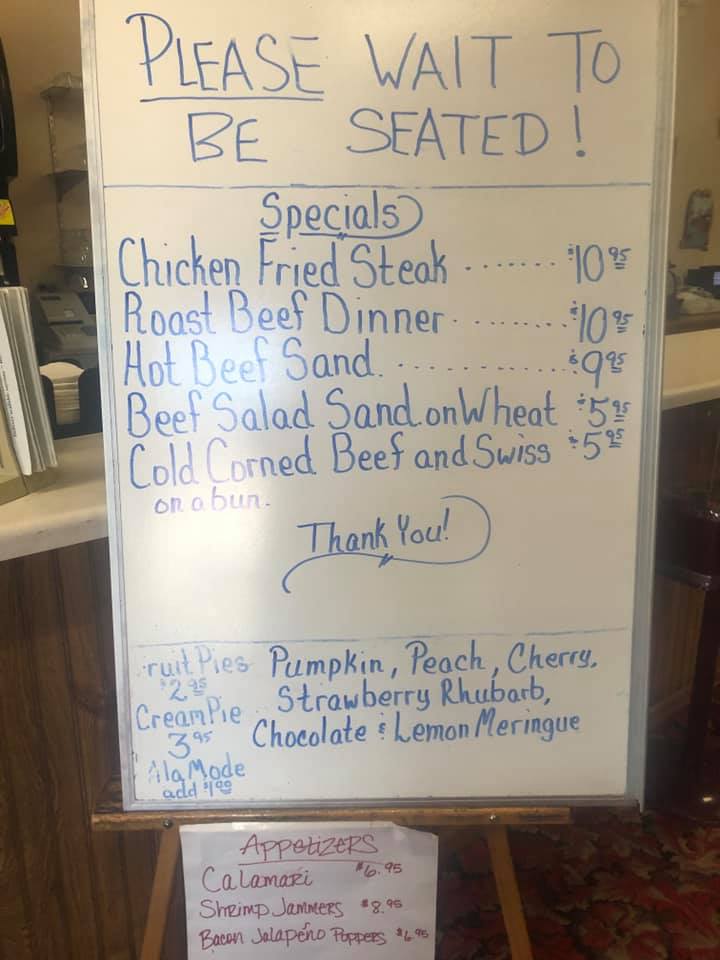 PLEASE WAIT TO
BE SEATED!
Specials
Chicken Fried Steak ....... $10.95
Roast Beef Dinner ........ $10.95
Hot Beef Sand. ............. $9.95
Beef Salad Sand. on Wheat $5.95
Cold Corned Beef and Swiss $5.95
on a bun.
Thank You!
ruit Pies Pumpkin, Peach, Cherry,
$2.95 Strawberry Rhubarb,
Cream Pie Chocolate & Lemon Meringue
3.95
Ala Mode
add $1.00
APPETIZERS
CALAMARI $6.95
SHRIMP JAMMERS $8.95
BACON JALAPEÑO POPPERS $6.95